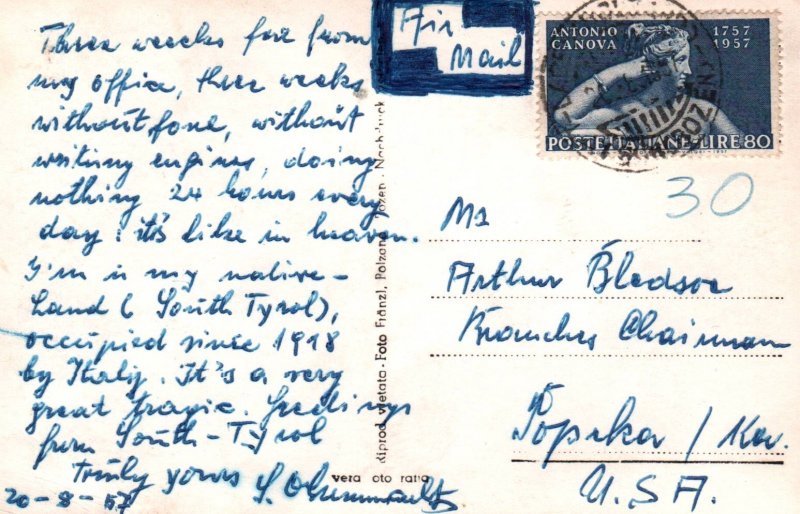 Three weeks far from
my office, three weeks
without fone, without
writing engines, doing
nothing 24 hours every
day: it's like in heaven.
I'm in my native-
Land (South Tyrol),
occupied since 1918
by Italy. It's a very
great tragic. Greetings
from South-Tyrol
Truly yours
20-8-57
Air
Mail
ANTONIO
CANOVA
1757
1957
POSTE ITALIANE - LIRE 80
30
Mr
Arthur Bledsoe
Chairman
Topeka / Kan.
U.S.A.
Riprod. vietata - Foto Fränzl, Bolzano
Nachdruck
vera foto